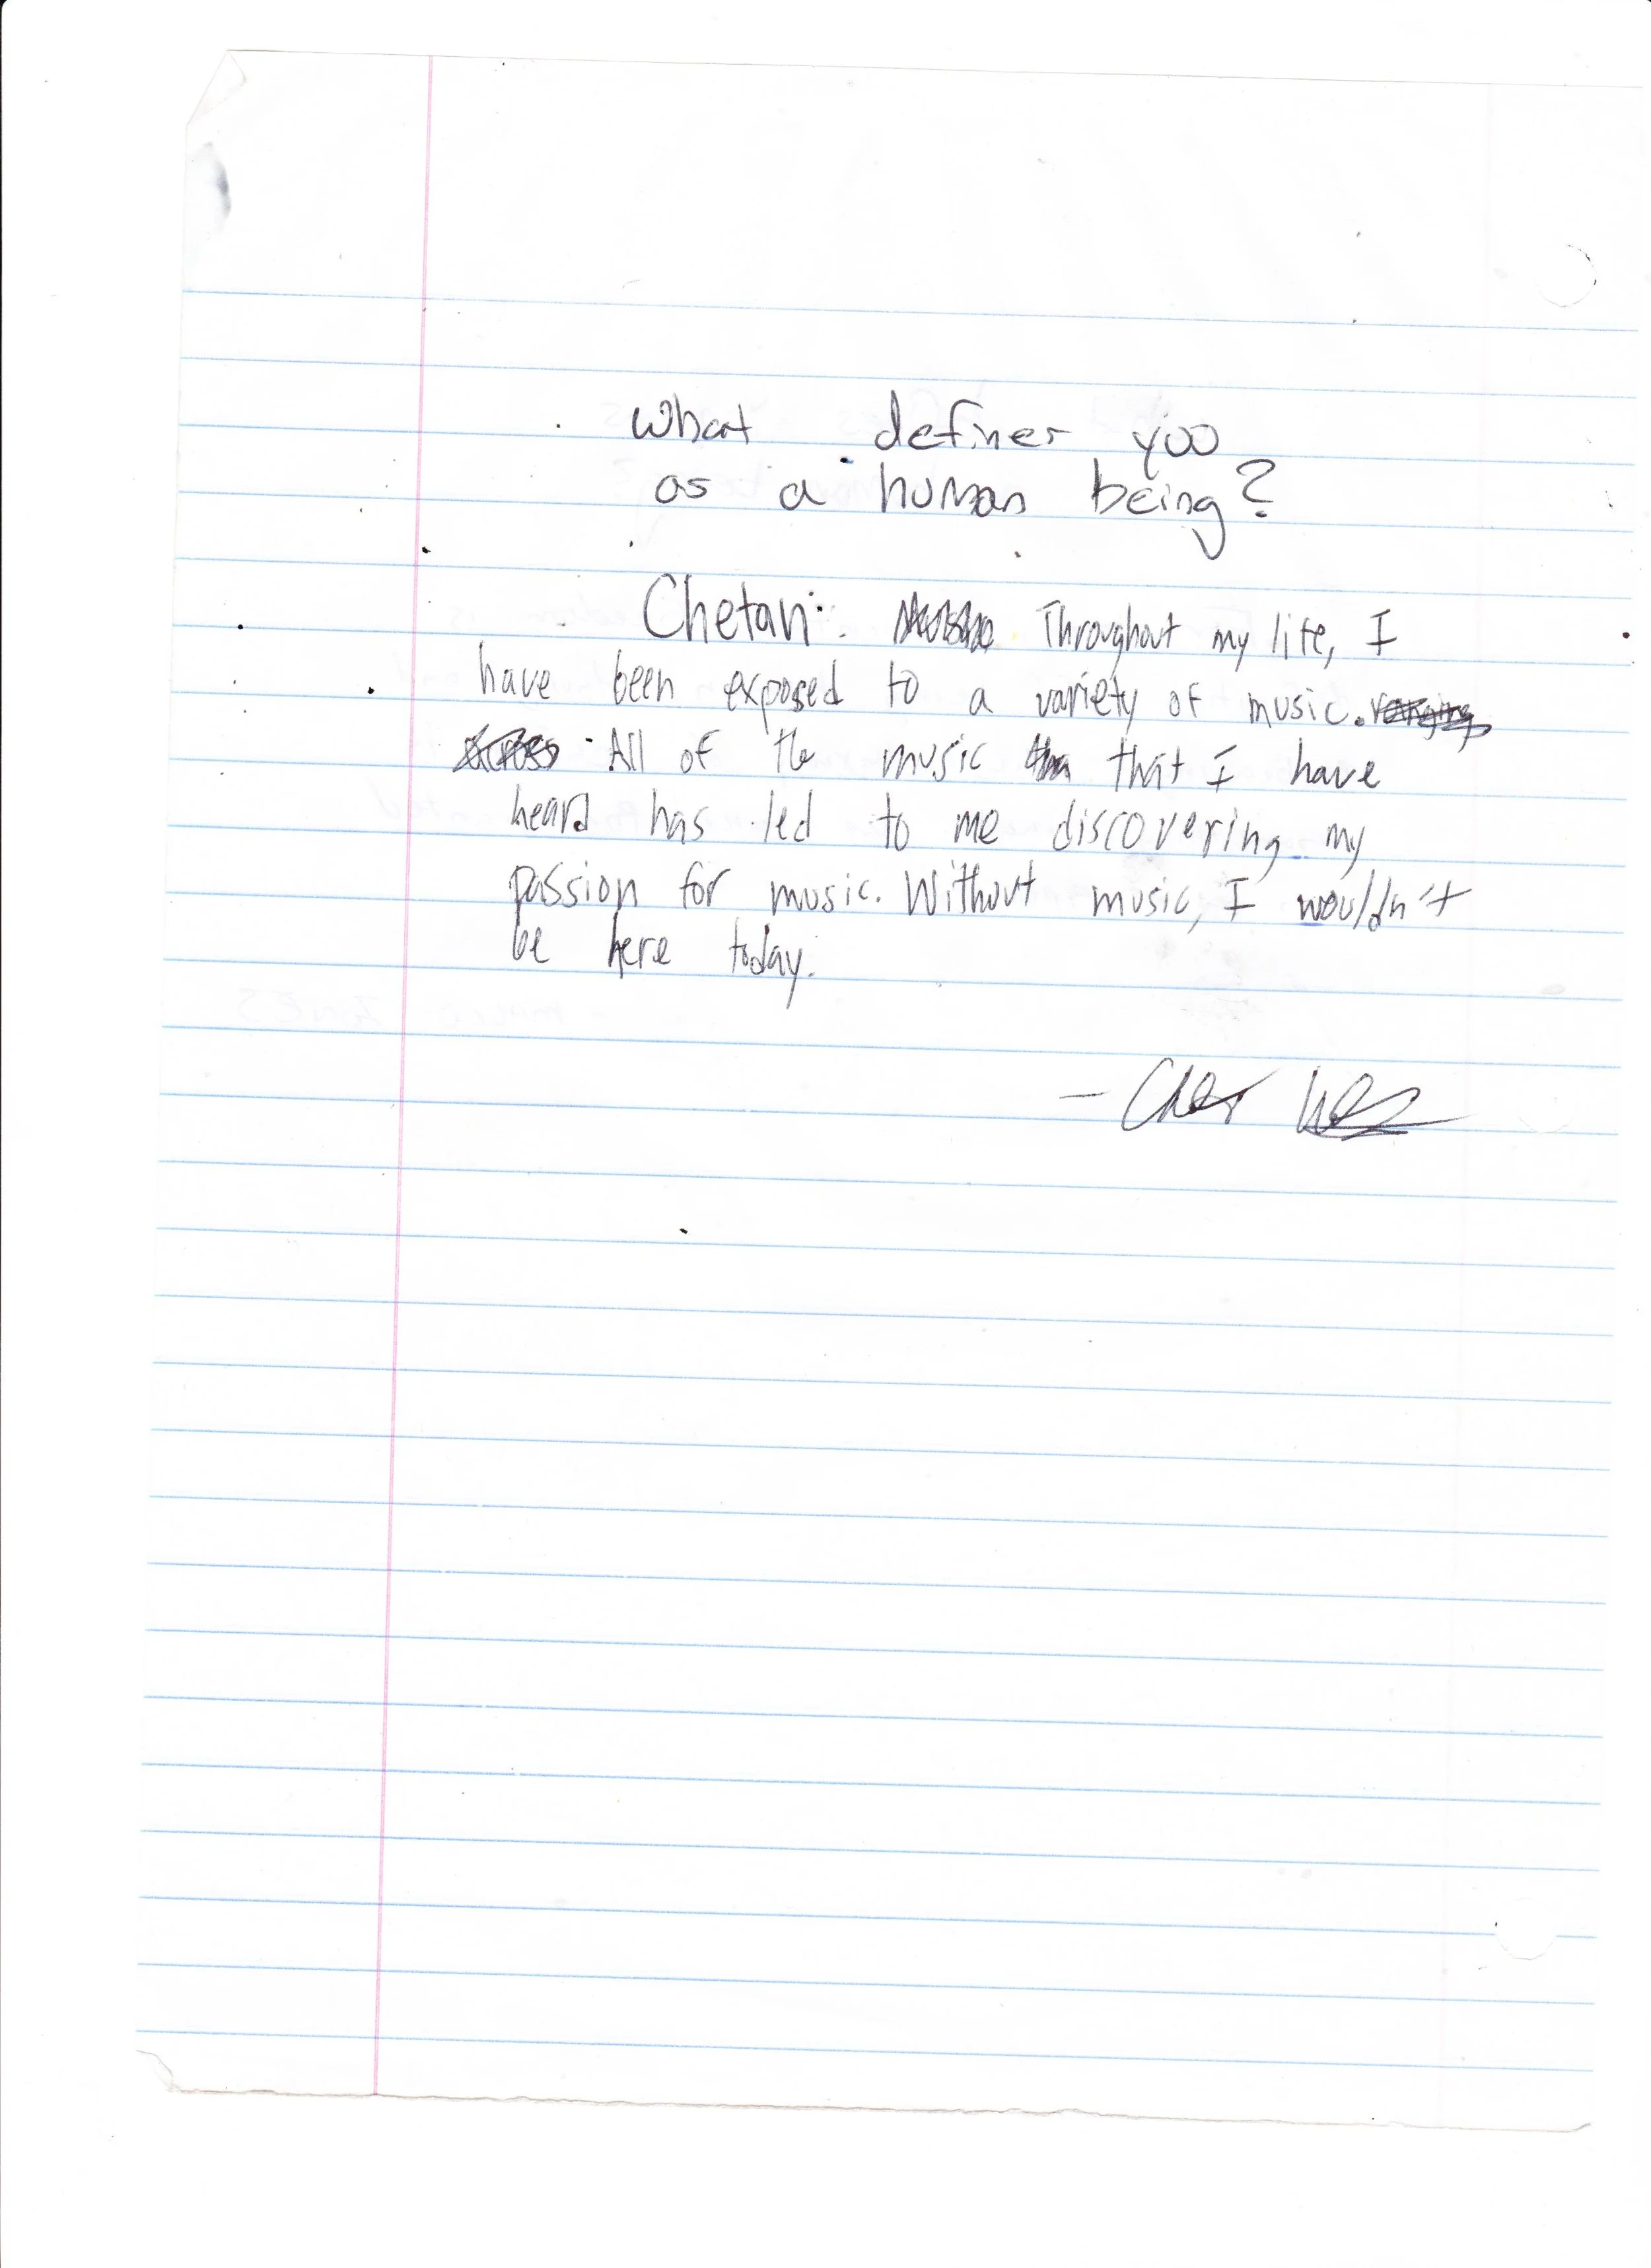 What defines you
as a human being?
Chetan: Throughout my life, I
have been exposed to a variety of music. ranging
across All of the music tha that I have
heard has led to me discovering my
passion for music. Without music, I wouldn't
be here today.